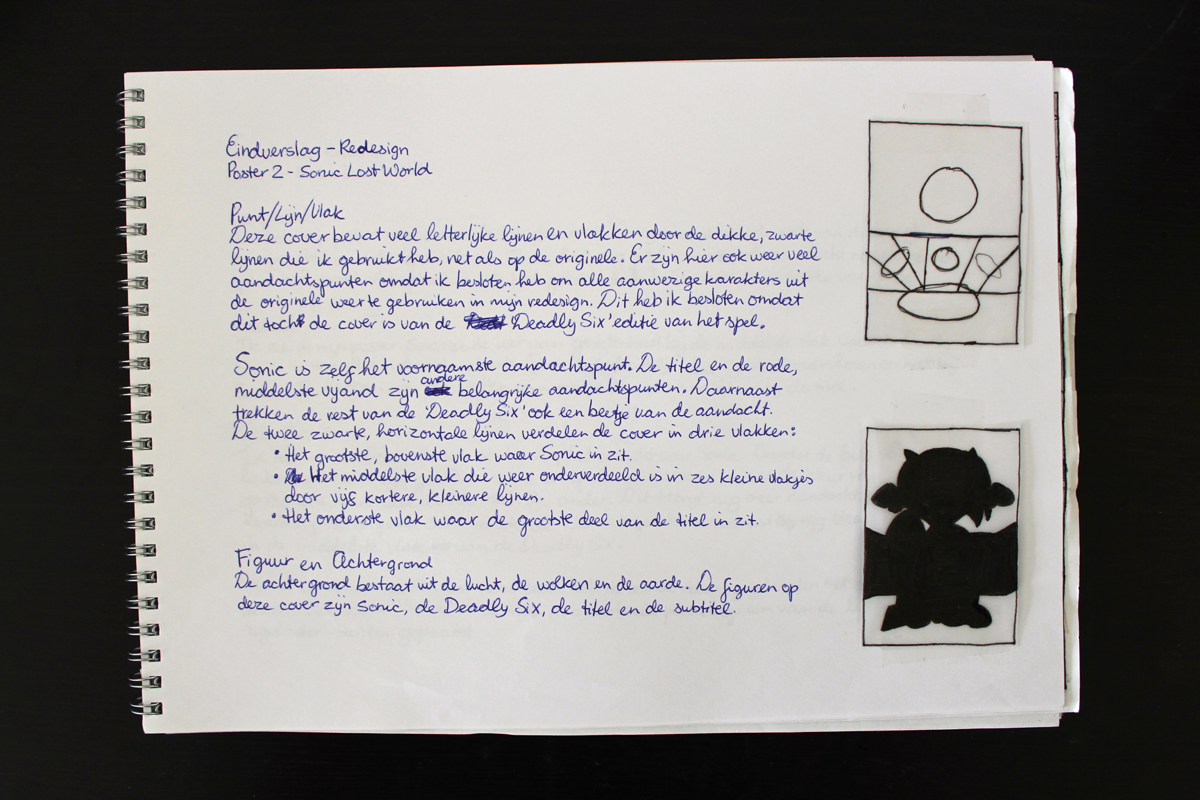 Eindverslag - Redesign
Poster 2 - Sonic Lost World
Punt/Lijn/Vlak
Deze cover bevat veel letterlijke lijnen en vlakken door de dikke, zwarte
lijnen die ik gebruikt heb, net als op de originele. Er zijn hier ook weer veel
aandachtspunten omdat ik besloten heb om alle aanwezige karakters uit
de originele weer te gebruiken in mijn redesign. Dit heb ik besloten omdat
dit toch de cover is van de 'Deadly Six' editie van het spel.
Sonic is zelf het voornaamste aandachtspunt. De titel en de rode,
middelste vijand zijn andere belangrijke aandachtspunten. Daarnaast
trekken de rest van de 'Deadly Six' ook een beetje van de aandacht.
De twee zwarte, horizontale lijnen verdelen de cover in drie vlakken:
• Het grootste, bovenste vlak waar Sonic in zit.
• Het middelste vlak die weer onderverdeeld is in zes kleine vlakjes
door vijf kortere, kleinere lijnen.
• Het onderste vlak waar de grootste deel van de titel in zit.
Figuur en Achtergrond
De achtergrond bestaat uit de lucht, de wolken en de aarde. De figuren op
deze cover zijn Sonic, de Deadly Six, de titel en de subtitel.